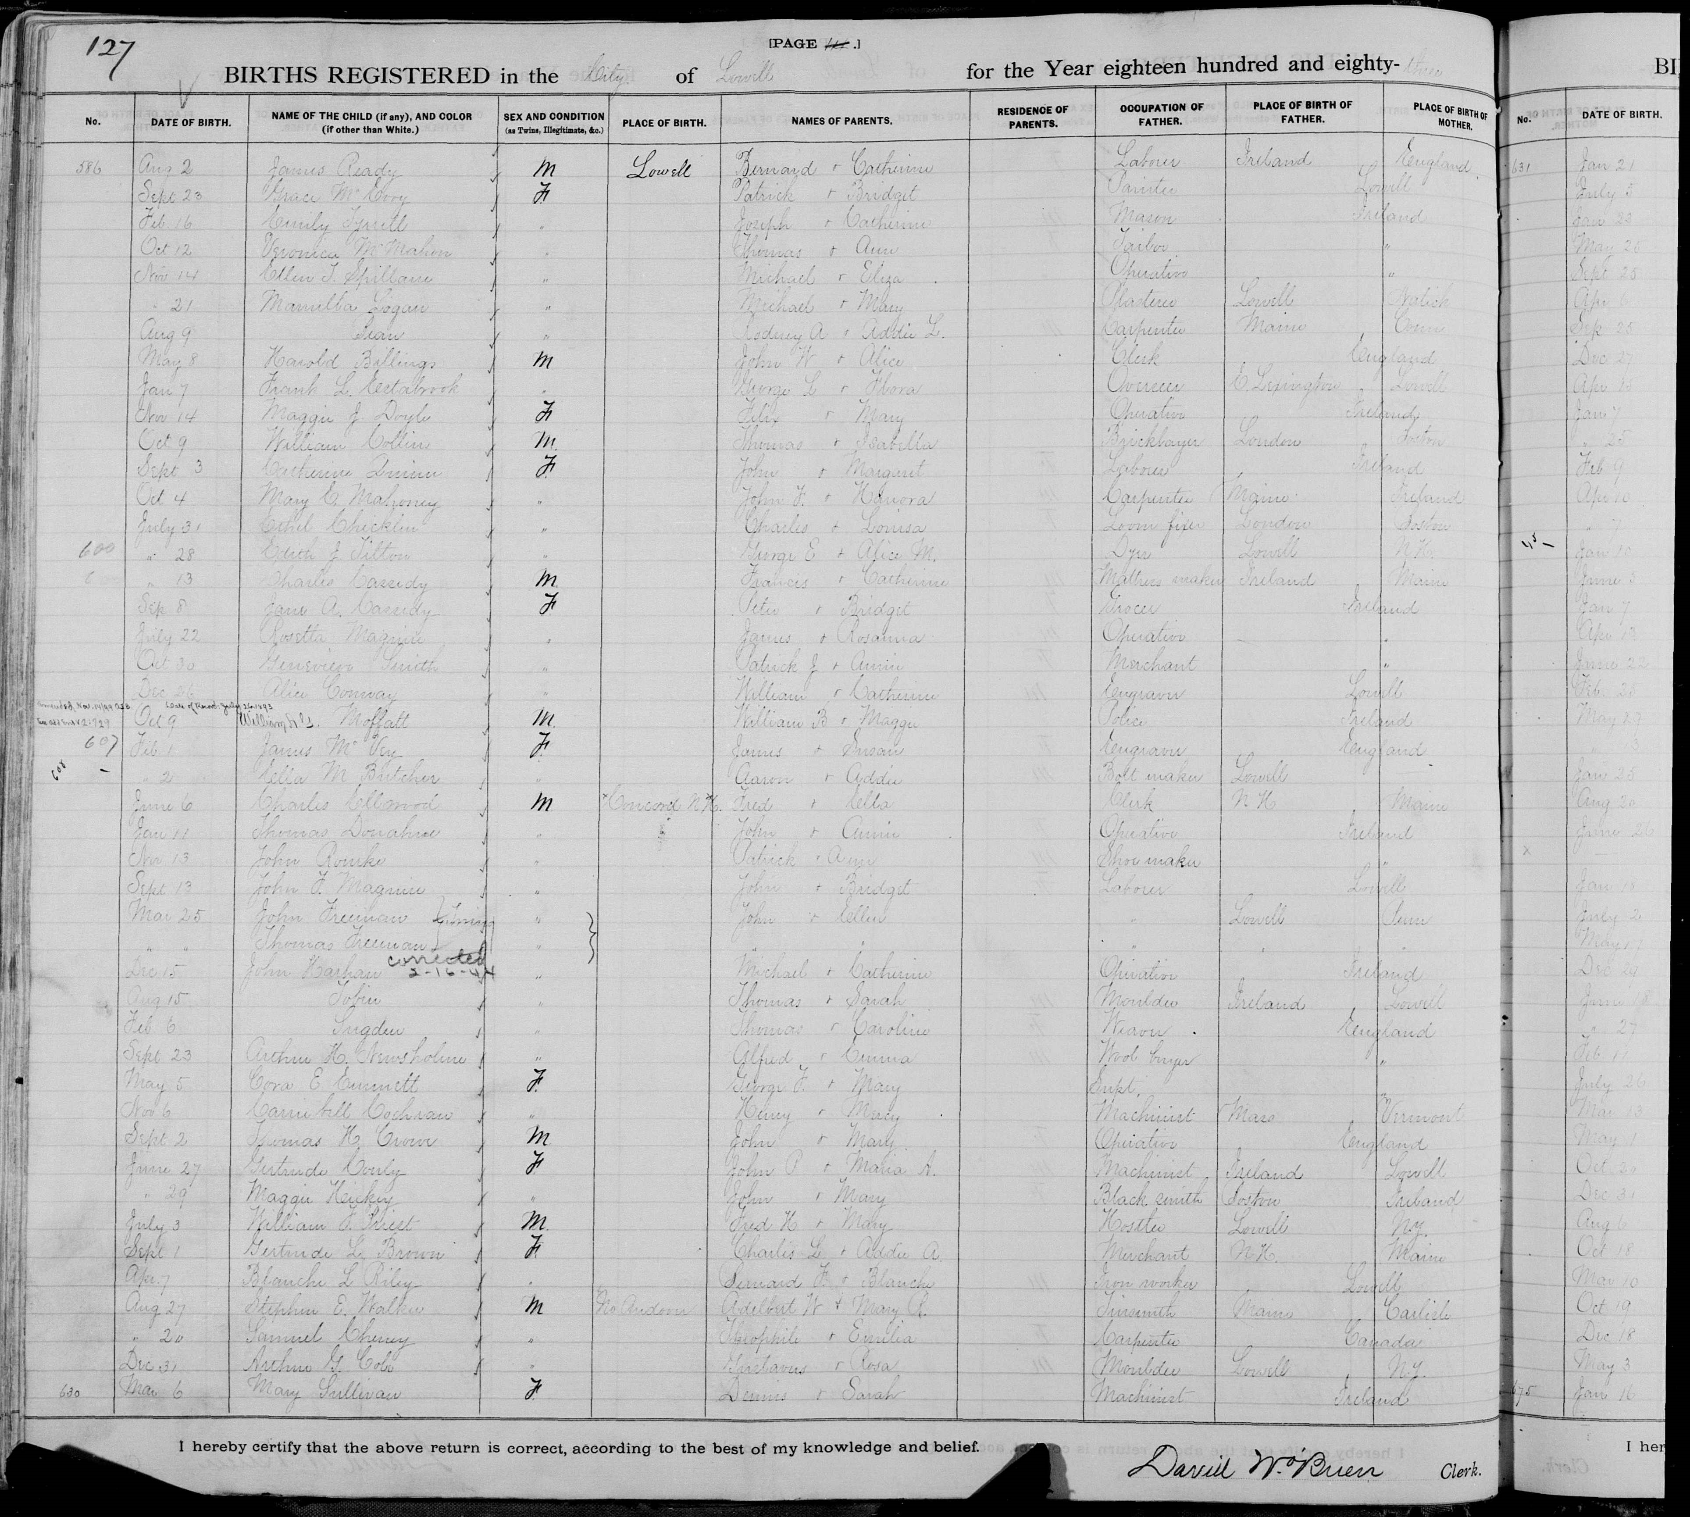 127
[PAGE .]
BIRTHS REGISTERED in the City of Lowell for the Year eighteen hundred and eighty-three
No. DATE OF BIRTH. NAME OF THE CHILD (if any), AND COLOR (if other than White.) SEX AND CONDITION (as Twins, Illegitimate, &c.) PLACE OF BIRTH. NAMES OF PARENTS. RESIDENCE OF PARENTS. OCCUPATION OF FATHER. PLACE OF BIRTH OF FATHER. PLACE OF BIRTH OF MOTHER. No. DATE OF BIRTH.
586 Aug 2 James Ready M Lowell Bernard + Catherine Laborer Ireland England 631 Jan 21
Sept 23 Grace Mc Cory F Patrick + Bridget Painter Lowell July 5
Feb 16 Emily Tyrell " Joseph + Catherine Mason Ireland Jan 23
Oct 12 Veronica Mc Mahon " Thomas + Ann Tailor " May 25
Nov 14 Ellen T. Spillane " Michael + Eliza Operative " Sept 25
" 21 Logan " Michael + Mary Plasterer Lowell Natick Apr
Aug 9 " Rodney A + Addie L. Carpenter Maine Conn Sep 25
May 8 Harold Billings M John W + Alice Clerk England Dec 27
Jan 7 Frank L Estabrook " George L + Flora Overseer E. Lexington Lowell Apr
Nov 14 Maggie J Doyle F Felix + Mary Operative Ireland Jan 7
Oct 9 William Collins M Thomas + Isabella Bricklayer London Boston " 25
Sept 3 Catherine Quinn F John + Margaret Laborer Ireland Feb 9
Oct 4 Mary E Mahoney " John F. + Honora Carpenter Maine Ireland Apr 10
July 31 Ethel Checklin " Charles + Louisa Loom fixer London Boston
600 " 28 Edith J Tilton " George E + Alice M. Dyer Lowell N.H. Jan 10
" 13 Charles Cassidy M Francis + Catherine Mattress maker Ireland Maine June 3
Sep 8 Jane A. Cassidy F Peter + Bridget Grocer Ireland Jan 7
July 22 Rosetta Maguire " James + Rosanna Operative " Apr 13
Oct 30 Genevieve Smith " Patrick J + Annie Merchant " June 22
Dec 26 Alice Conway " William + Catherine Engraver Lowell Feb 28
Oct 9 William H G. Moffatt M William B + Maggie Police Ireland May 27
607 Feb 1 James Mc Vey F James + Susan Engraver England
608 " 2 Ella M Butcher " Aaron + Addie Bolt maker Lowell Jan 25
June 6 Charles Ellwood M Concord N.H. Fred + Ella Clerk N H Maine Aug 20
Jan 11 Thomas Donahue " John + Annie Operative Ireland June 26
Nov 13 John Rourke " Patrick + Ann Shoe maker "
Sept 13 John F. Maguire " John + Bridget Laborer Lowell Jan 10
Mar 25 John Freeman } Twins " John + Ellen " Lowell Penn July 2
" " Thomas Freeman " " " " " " May 17
Dec 15 John Harhan corrected 2-16-44 " Michael + Catherine Operative Ireland Dec
Aug 15 Tobin " Thomas + Sarah Moulder Ireland Lowell June 18
Feb 6 Sugden " Thomas + Caroline Weaver England " 27
Sept 23 Arthur H. Newsholme " Alfred + Emma Wool buyer " Feb 11
May 5 Cora E Emmett F George F. + Mary Supt. July 26
Nov 6 Carribell Cochran " Henry + Mary Machinist Mass Vermont Mar 13
Sept 2 Thomas H. Crowe M John + Mary Operative England May 1
June 27 Gertrude Conly F John P + Maria A. Machinist Ireland Lowell Oct 20
" 29 Maggie Hickey " John + Mary Black smith Boston Ireland Dec 30
July 3 William F. Priest M Fred H + Mary Hostler Lowell N.Y. Aug 6
Sept 1 Gertrude L. Brown F Charles L + Addie A Merchant N.H. Maine Oct 18
Apr 7 Blanche L Riley " Bernard F. + Blanche Iron worker Lowell Mar 10
Aug 27 Stephen E. Walker M No Andover Adelbert W + Mary A. Tinsmith Maine Carlisle Oct 19
" 20 Samuel Cheney " Theophile + Emelia Carpenter Canada Dec 18
Dec 31 Arthur G. Cole " Gustavus + Rosa Moulder Lowell N.Y. May 3
630 Mar 6 Mary Sullivan F Dennis + Sarah Machinist Ireland 675 Jan 16
I hereby certify that the above return is correct, according to the best of my knowledge and belief.
David W. O'Brien Clerk.
I her